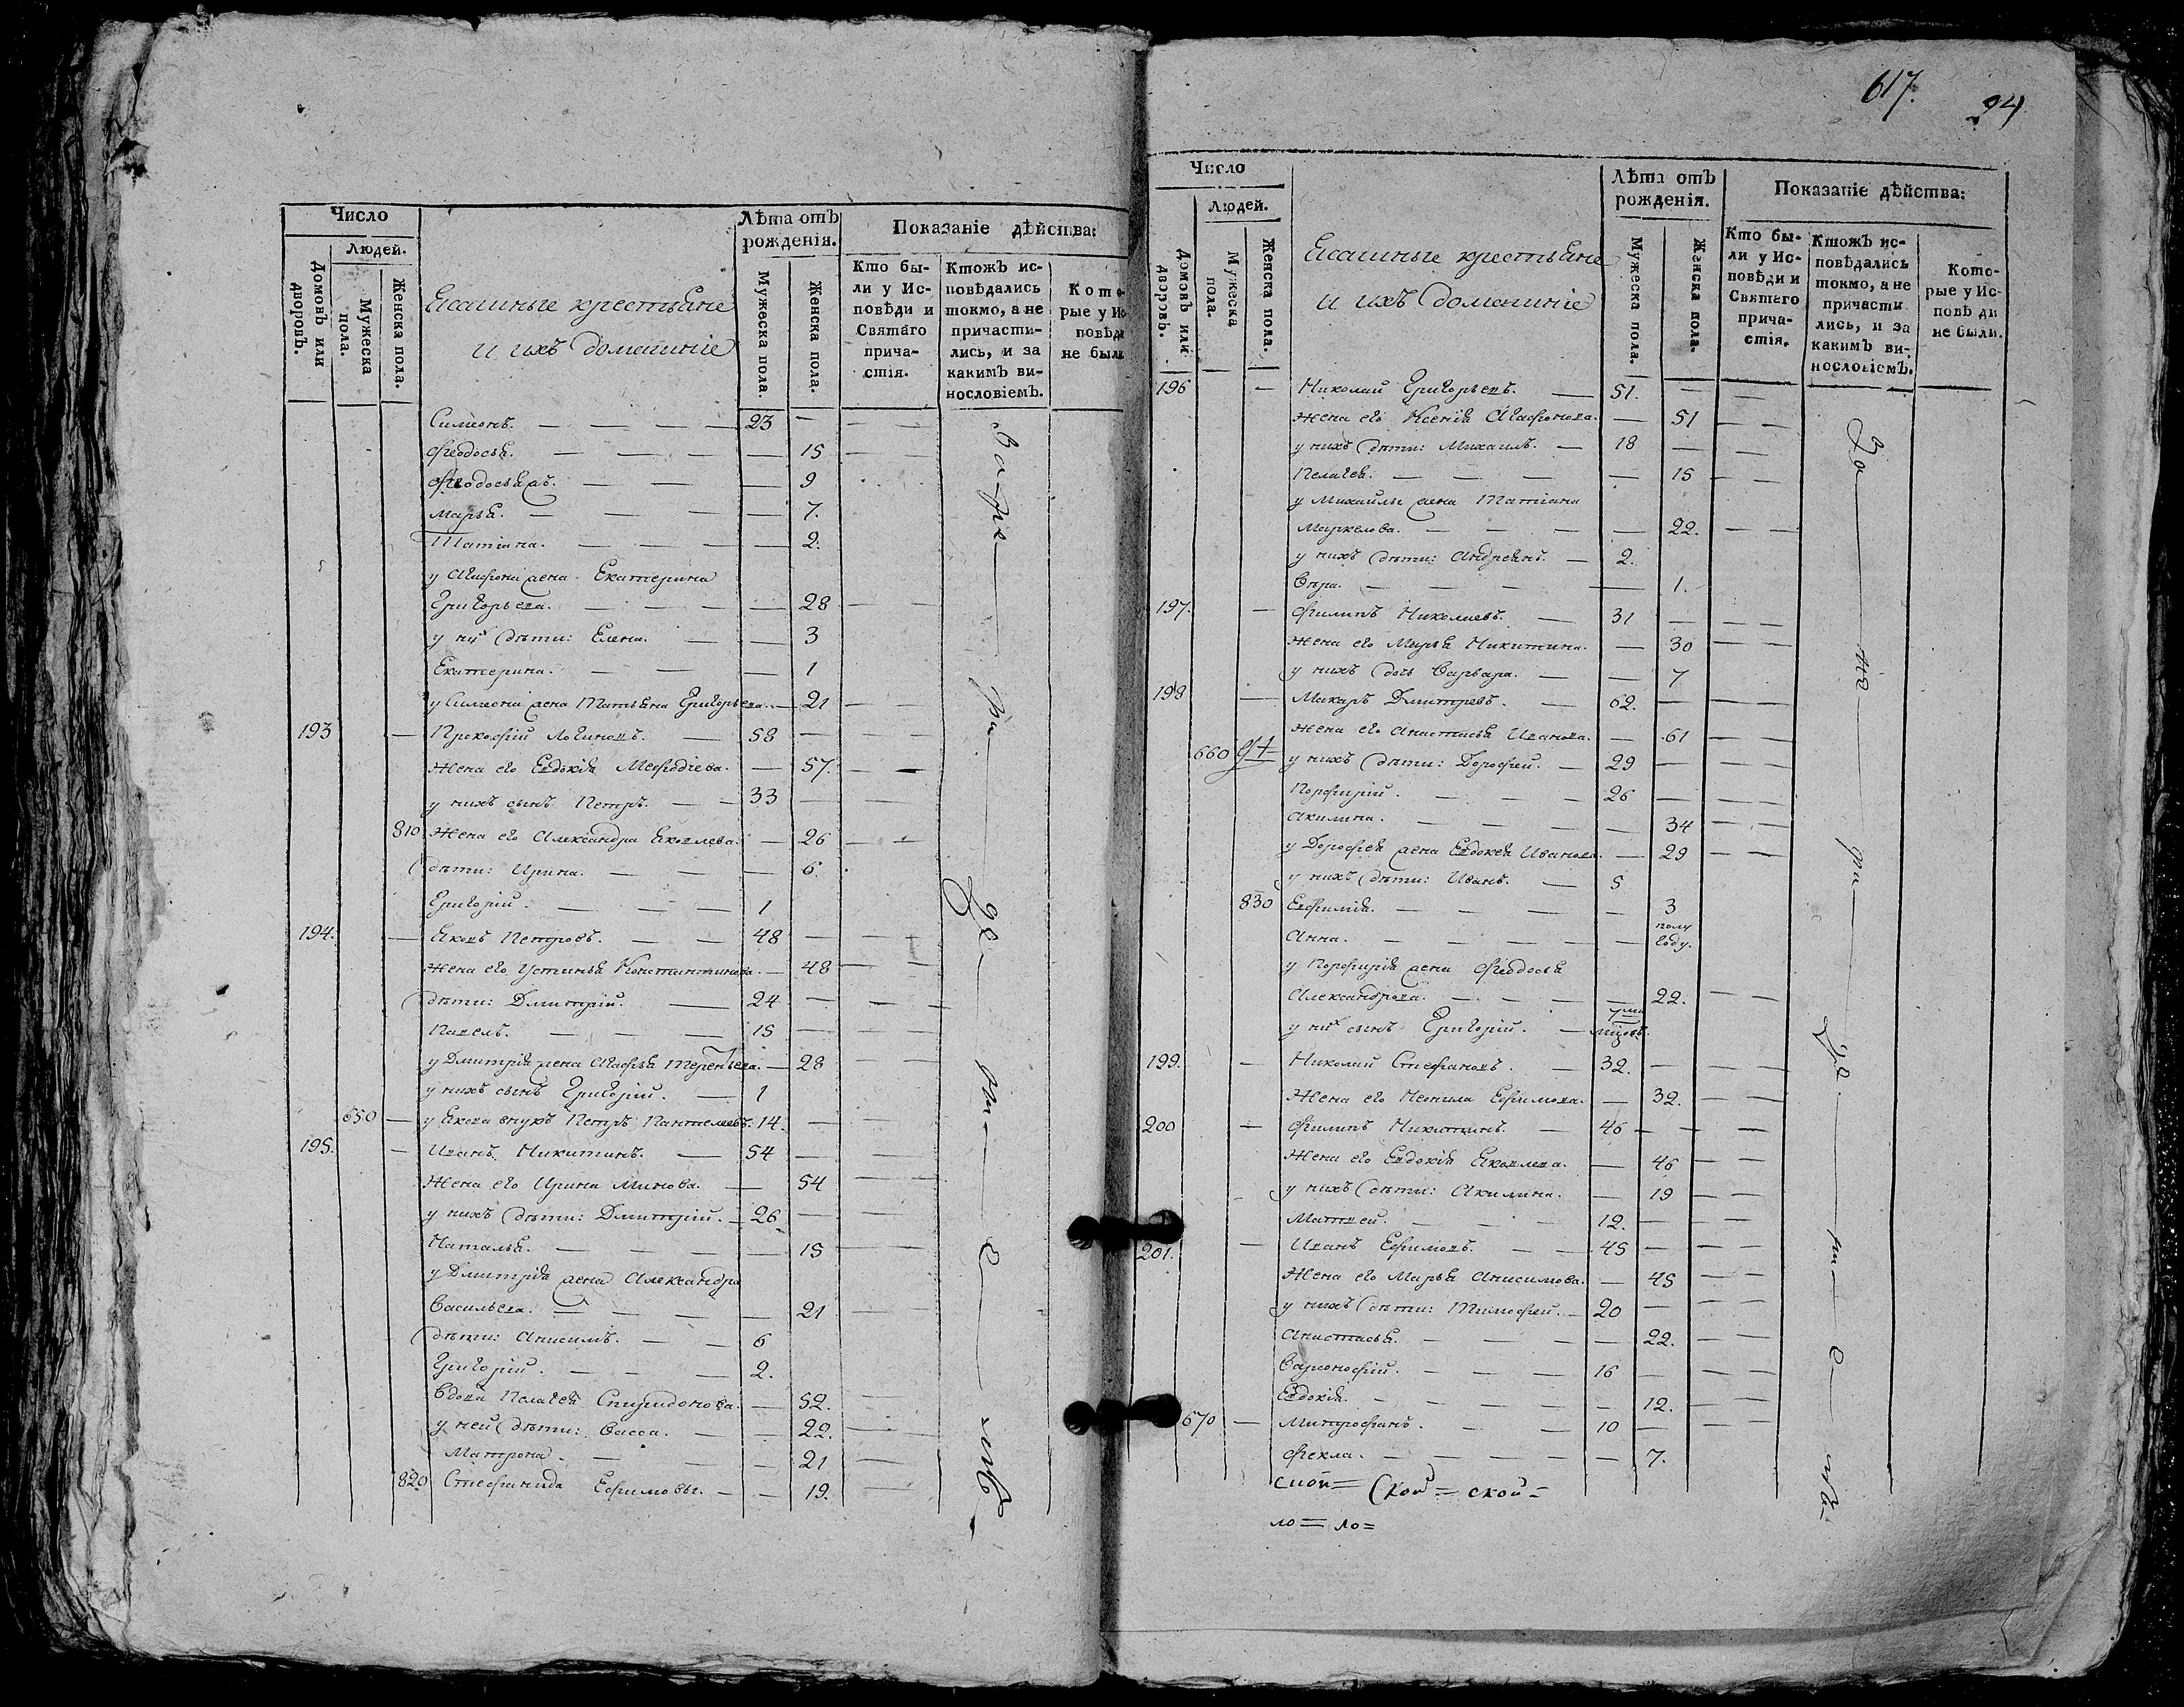 Число
Людей.
Домовъ или дворовъ.
Мужеска пола.
Женска пола.
Ясашные крестьяне
и ихъ домашніе
Лѣта отъ рожденія.
Мужеска пола.
Женска пола.
Показаніе дѣйства:
Кто были у Исповѣди и Святаго причастія.
Ктожъ исповѣдались токмо, а не причастились, и за какимъ винословіемъ.
Которые у Исповѣди не были
Симеонъ. — 23 —
Ѳеодосья. — 15
Ѳеодосья жъ. — 9
Марья. — 7.
Татіана. — 2.
у Агафона жена Екатерина
Григорьева. — 28
у них дѣти: Елена. — 3
Екатерина. — 1
у Симеона жена Татьяна Григорьева. — 21
193 — Прокофій Логиновъ. — 58 —
Жена его Евдокія Мефодіева. — 57.
у нихъ сынъ Петръ. — 33 —
810 Жена его Александра Яковлева. — 26
дѣти: Ирина. — 6.
Григорій. — 1
194. — Яковъ Петровъ. — 48 —
Жена его Устинья Константинова. — 48
дѣти: Дмитрій. — 24 —
Павелъ. — 15 —
у Дмитрія жена Агафья Терентьева. — 28
у нихъ сынъ Григорій. — 1
650 — у Якова внукъ Петръ Пантелеевъ. 14. —
195. — Иванъ Никитинъ. — 54 —
Жена его Ирина Минова. — 54
у нихъ дѣти: Дмитрій. — 26 —
Наталья. — 15
у Дмитрія жена Александра
Васильева. — 21
дѣти: Анисимъ. — 6
Григорій. — 2.
Вдова Пелагея Спиридонова. — 52.
у ней дѣти: Васса. — 22.
Матрона — 21
820 Стефанида Ефимовы. — 19.
617.
24
Число
Людей.
Домовъ или дворовъ.
Мужеска пола.
Женска пола.
Ясашные крестьяне
и ихъ домашніе
Лѣта отъ рожденія.
Мужеска пола.
Женска пола.
Показаніе дѣйства:
Кто были у Исповѣди и Святаго причастія.
Ктожъ исповѣдались токмо, а не причастились, и за какимъ винословіемъ.
Которые у Исповѣди не были.
196 — Николай Григорьевъ. — 51. —
Жена его Ксенія Агафонова. — 51
у нихъ дѣти: Михаилъ. — 18 —
Пелагея. — 15
у Михайлы жена Татіана
Маркелова. — 22.
у нихъ дѣти: Андреянъ. — 2.
Вѣра. — 1.
197. — Филипъ Николаевъ. — 31 —
Жена его Марья Никитина. — 30
у нихъ дочь Варвара. — 7
198 — Макаръ Дмитревъ. — 62. —
Жена его Анастасья Иванова. — 61
660 у нихъ дѣти: Дорофей. — 29 —
Порфирій. — 26 —
Акилина. — 34
у Дорофея жена Евдокея Иванова. — 29
у нихъ дѣти: Иванъ. — 5
830 Евфимія. — 3
Анна. — полу году.
у Порфирія жена Ѳеодосья
Александрова. — 22.
у них сынъ Григорій. —
199. — Николай Стефановъ. — 32. —
Жена его Неонила Ефимова. — 32.
200 — Филипъ Никитинъ. — 46 —
Жена его Евдокія Яковлева. — 46
у нихъ дѣти: Акилина. — 19
Матвей. — 12. —
201. — Иванъ Ефимовъ. — 45 —
Жена его Марья Анисимова. — 45
у нихъ дѣти: Тимофей. — 20 —
Анастасья. — 22.
Варсонофій. — 16 —
Евдокія. — 12.
670 — Митрофанъ. — 10 —
Фекла. — 7.
ской =
ло = ло =